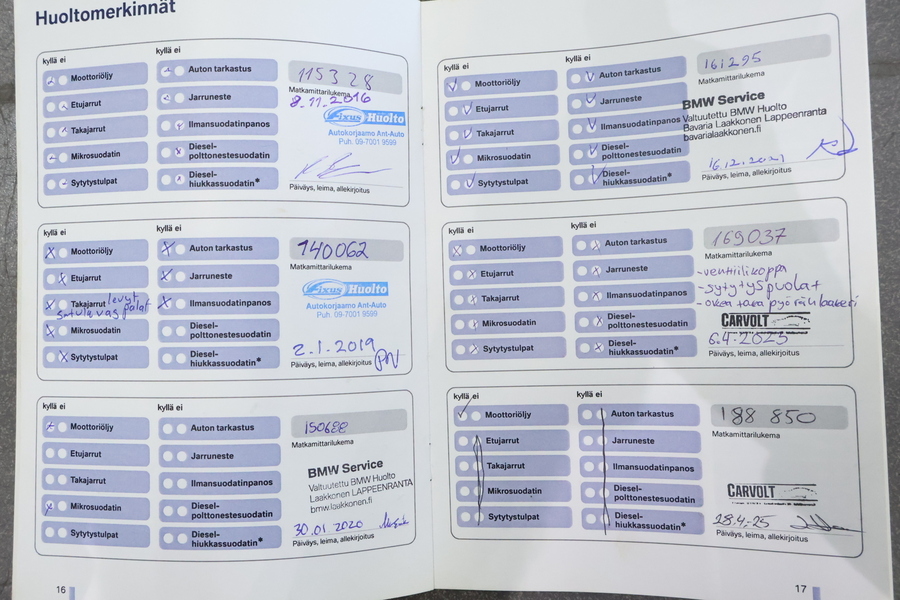 Huoltomerkinnät
kyllä ei
kyllä ei
Moottoriöljy
Auton tarkastus
115328
Matkamittarilukema
Etujarrut
Jarruneste
8.11.2016
Takajarrut
Ilmansuodatinpanos
Fixus Huolto
Autokorjaamo Ant-Auto
Puh. 09-7001 9599
Mikrosuodatin
Diesel-
polttonestesuodatin
Sytytystulpat
Diesel-
hiukkassuodatin*
Päiväys, leima, allekirjoitus
kyllä ei
kyllä ei
Moottoriöljy
Auton tarkastus
140062
Matkamittarilukema
Etujarrut
Jarruneste
Takajarrut levyt
satulavaspalat
Ilmansuodatinpanos
Fixus Huolto
Autokorjaamo Ant-Auto
Puh. 09-7001 9599
Mikrosuodatin
Diesel-
polttonestesuodatin
Sytytystulpat
Diesel-
hiukkassuodatin*
2.1.2019
Päiväys, leima, allekirjoitus
kyllä ei
kyllä ei
Moottoriöljy
Auton tarkastus
150688
Matkamittarilukema
Etujarrut
Jarruneste
Takajarrut
Ilmansuodatinpanos
BMW Service
Valtuutettu BMW Huolto
Laakkonen LAPPEENRANTA
bmw.laakkonen.fi
Mikrosuodatin
Diesel-
polttonestesuodatin
Sytytystulpat
Diesel-
hiukkassuodatin*
30.01.2020
Päiväys, leima, allekirjoitus
16
kyllä ei
kyllä ei
Moottoriöljy
Auton tarkastus
161295
Matkamittarilukema
Etujarrut
Jarruneste
Takajarrut
Ilmansuodatinpanos
BMW Service
Valtuutettu BMW Huolto
Bavaria Laakkonen Lappeenranta
bavarialaakkonen.fi
Mikrosuodatin
Diesel-
polttonestesuodatin
Sytytystulpat
Diesel-
hiukkassuodatin*
16.12.2021
Päiväys, leima, allekirjoitus
kyllä ei
kyllä ei
Moottoriöljy
Auton tarkastus
169037
Matkamittarilukema
Etujarrut
Jarruneste
-venttiilikoppa
-sytytyspuolat
-oikea taka pyörän laakeri
Takajarrut
Ilmansuodatinpanos
CARVOLT
Mikrosuodatin
Diesel-
polttonestesuodatin
Sytytystulpat
Diesel-
hiukkassuodatin*
6.4.2023
Päiväys, leima, allekirjoitus
kyllä ei
kyllä ei
Moottoriöljy
Auton tarkastus
188 850
Matkamittarilukema
Etujarrut
Jarruneste
Takajarrut
Ilmansuodatinpanos
CARVOLT
Mikrosuodatin
Diesel-
polttonestesuodatin
Sytytystulpat
Diesel-
hiukkassuodatin*
28.4.-25
Päiväys, leima, allekirjoitus
17